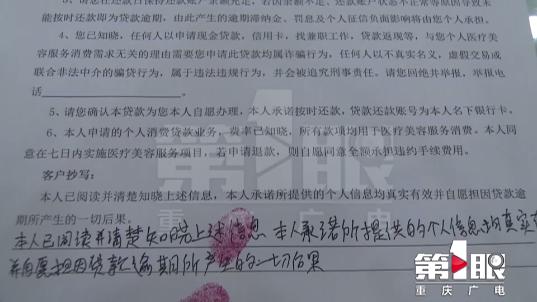 3、请您在还款日保持还款账户余额充足，若因余额不足、还款账户状态不正常等原因导致未
能按时还款即为贷款逾期，由此产生的逾期滞纳金、罚息及个人征信负面影响将由您个人承担。
4、您已知晓，任何人以申请现金贷款，信用卡，找兼职工作，贷款返现等，与您个人医疗美
容服务消费需求无关的理由需要您申请此贷款均属诈骗行为，任何人以不真实名义，虚假交易或
联合非法中介的骗贷行为，属于违法违规行为，并会被追究刑事责任。请您回绝并举报，举报电
话
5、请您确认本贷款为您本人自愿办理，本人承诺按时还款，贷款还款账号为本人名下银行卡。
6、本人申请的个人消费贷款业务，费率已知晓，所有款项均用于医疗美容服务消费。本人同
意在七日内实施医疗美容服务项目，若申请退款，则自愿同意全额承担违约手续费用。
客户抄写：
本人已阅读并清楚知晓上述信息，本人承诺所提供的个人信息均真实有效并自愿担因贷款逾
期所产生的一切后果。
本人已阅读并清楚知晓上述信息 本人承诺所提供的个人信息均真实
并自愿担因贷款逾期所产生的一切后果
第1眼
重庆广电
第1眼
重庆广电